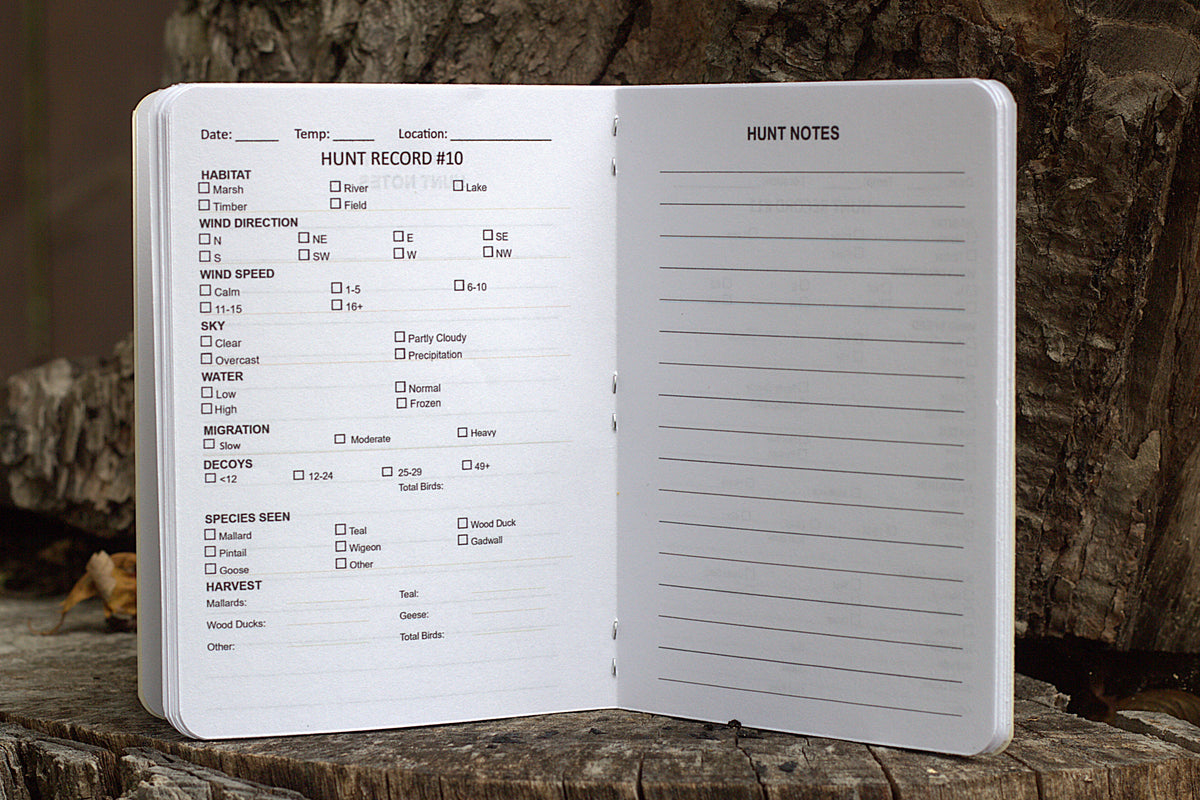 Date: ______ Temp: ______ Location: ______________
HUNT RECORD #10
HABITAT
☐ Marsh ☐ River ☐ Lake
☐ Timber ☐ Field
WIND DIRECTION
☐ N ☐ NE ☐ E ☐ SE
☐ S ☐ SW ☐ W ☐ NW
WIND SPEED
☐ Calm ☐ 1-5 ☐ 6-10
☐ 11-15 ☐ 16+
SKY
☐ Clear ☐ Partly Cloudy
☐ Overcast ☐ Precipitation
WATER
☐ Low ☐ Normal
☐ High ☐ Frozen
MIGRATION
☐ Slow ☐ Moderate ☐ Heavy
DECOYS
☐ <12 ☐ 12-24 ☐ 25-29 ☐ 49+
Total Birds:
SPECIES SEEN
☐ Mallard ☐ Teal ☐ Wood Duck
☐ Pintail ☐ Wigeon ☐ Gadwall
☐ Goose ☐ Other
HARVEST
Mallards: Teal:
Wood Ducks: Geese:
Other: Total Birds:
HUNT NOTES